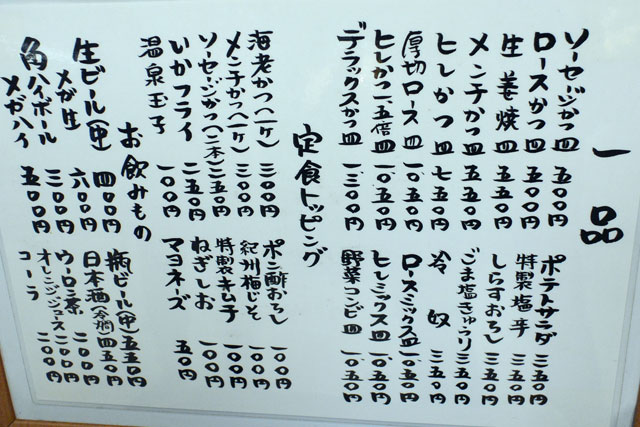 一品
ソーセージかつ皿 五五〇円
ロースかつ皿 五〇〇円
生姜焼皿 五五〇円
メンチかつ皿 五五〇円
ヒレかつ皿 七五〇円
厚切ロース皿 一〇五〇円
ヒレかつ一、五倍皿 一〇五〇円
デラックスかつ皿 一三〇〇円
ポテトサラダ 三五〇円
特製塩辛 三五〇円
しらすおろし 三五〇円
ごま塩きゅうり 三五〇円
冷奴 三五〇円
ロースミックス皿 一〇五〇円
ヒレミックス皿 一〇五〇円
野菜コンビ皿 一〇五〇円
定食トッピング
海老かつ(一ケ) 三〇〇円
メンチかつ(一ケ) 三〇〇円
ソーセージかつ(二本) 三五〇円
いかフライ 二五〇円
温泉玉子 一〇〇円
ポン酢おろし 一〇〇円
紀州梅じそ 一〇〇円
特製キムチ 一〇〇円
ねぎしお 一〇〇円
マヨネーズ 五〇円
お飲みもの
生ビール(中) 四〇〇円
メガ生 六〇〇円
角ハイボール 三〇〇円
メガハイ 五〇〇円
瓶ビール(中) 五五〇円
日本酒(冷酒) 四五〇円
ウーロン茶 二〇〇円
オレンジジュース 二〇〇円
コーラ 二〇〇円